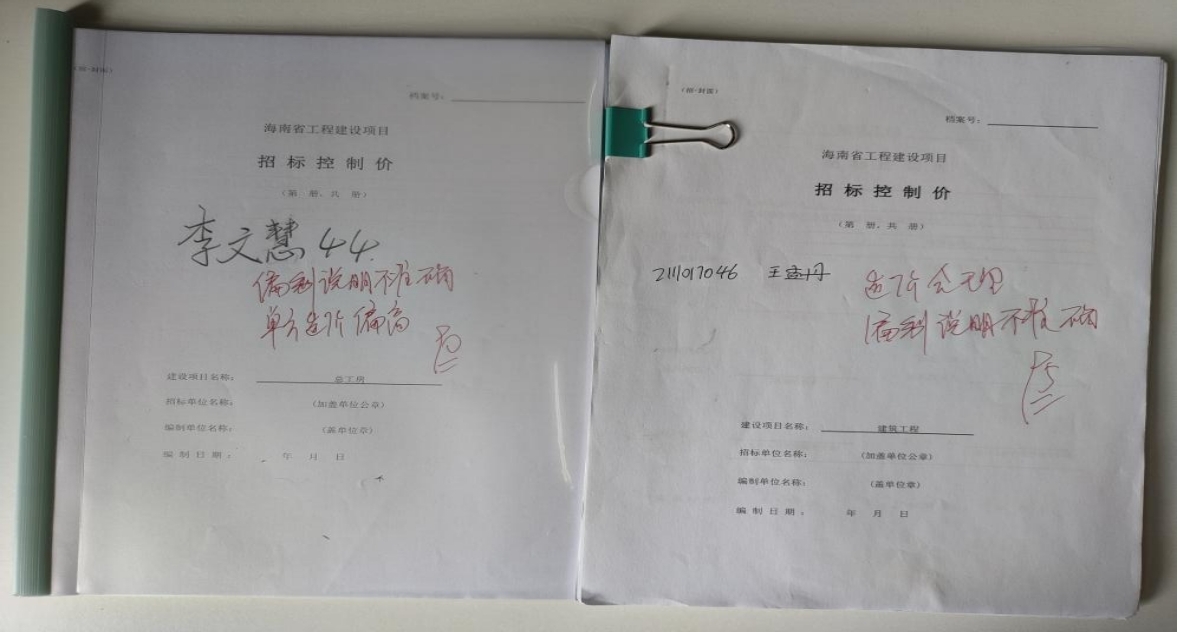 （招-封面）
档案号：
海南省工程建设项目
招标控制价
（第 册，共 册）
李文慧 44
编制说明不准确
单方造价偏高
建设项目名称： 总工房
招标单位名称： （加盖单位公章）
编制单位名称： （盖单位章）
编制日期： 年 月 日
（招-封面）
档案号：
海南省工程建设项目
招标控制价
（第 册，共 册）
211017046 王孟丹
造价合理
编制说明不准确
75
建设项目名称： 建筑工程
招标单位名称： （加盖单位公章）
编制单位名称： （盖单位章）
编制日期： 年 月 日